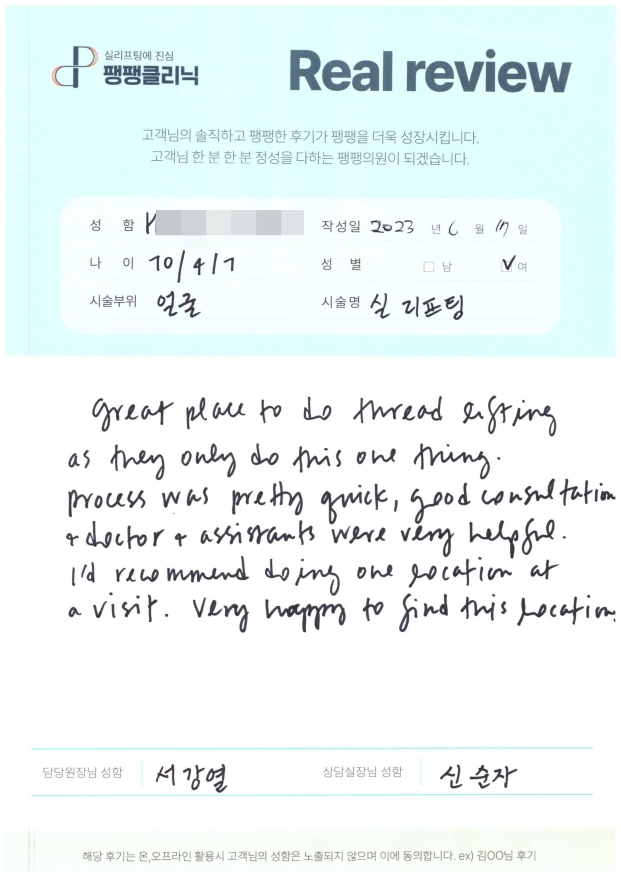 실리프팅에 진심
팽팽클리닉
Real review
고객님의 솔직하고 팽팽한 후기가 팽팽을 더욱 성장시킵니다.
고객님 한 분 한 분 정성을 다하는 팽팽의원이 되겠습니다.
성 함 H 작성일 2023 년 6 월 17 일
나 이 70/4/7 성 별 남 여
시술부위 얼굴 시술명 실 리프팅
Great place to do thread lifting
as they only do this one thing.
process was pretty quick, good consultation
+ doctor + assistants were very helpful.
I'd recommend doing one location at
a visit. Very happy to find this location.
담당원장님 성함 서강열 상담실장님 성함 신순자
해당 후기는 온,오프라인 활용시 고객님의 성함은 노출되지 않으며 이에 동의합니다. ex) 김OO님 후기